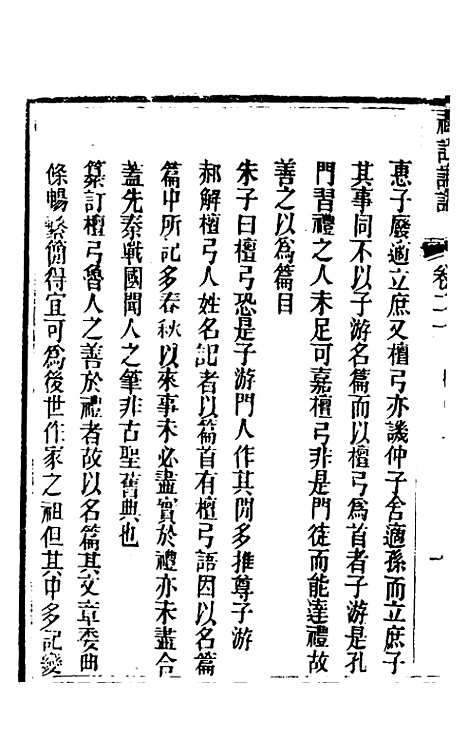 惠子廢適立庶又檀弓亦譏仲子舍適孫而立庶子
其事同不以子游名篇而以檀弓為首者子游是孔
門習禮之人未足可嘉檀弓非是門徒而能達禮故
善之以為篇目
朱子曰檀弓恐是子游門人作其間多推尊子游
郝解檀弓人姓名記者以篇首有檀弓語因以名篇
篇中所記多春秋以來事未必盡實於禮亦未盡合
蓋先秦戰國聞人之筆非古聖舊典也
纂訂檀弓魯人之善於禮者故以名篇其文章委曲
條暢繁簡得宜可為後世作家之祖但其中多記變